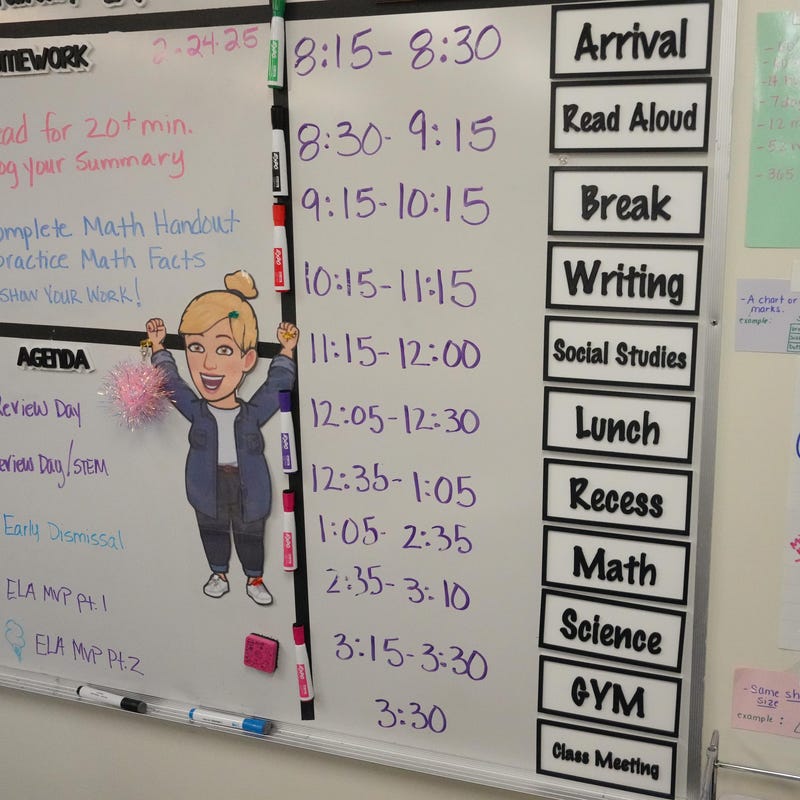 2-24-25
8:15-8:30 Arrival
ad for 20+ min.
og your Summary
8:30-9:15 Read Aloud
9:15-10:15 Break
omplete Math Handout
practice Math Facts
SHOW YOUR WORK!
10:15-11:15 Writing
11:15-12:00 Social Studies
AGENDA
Review Day
12:05-12:30 Lunch
eview Day/STEM
12:35-1:05 Recess
Early Dismissal
1:05-2:35 Math
ELA MVP pt.1
2:35-3:10 Science
ELA MVP Pt.2
3:15-3:30 GYM
3:30 Class Meeting
- A chart or
marks.
example:
- Same sh
size
example:
EXPO
365